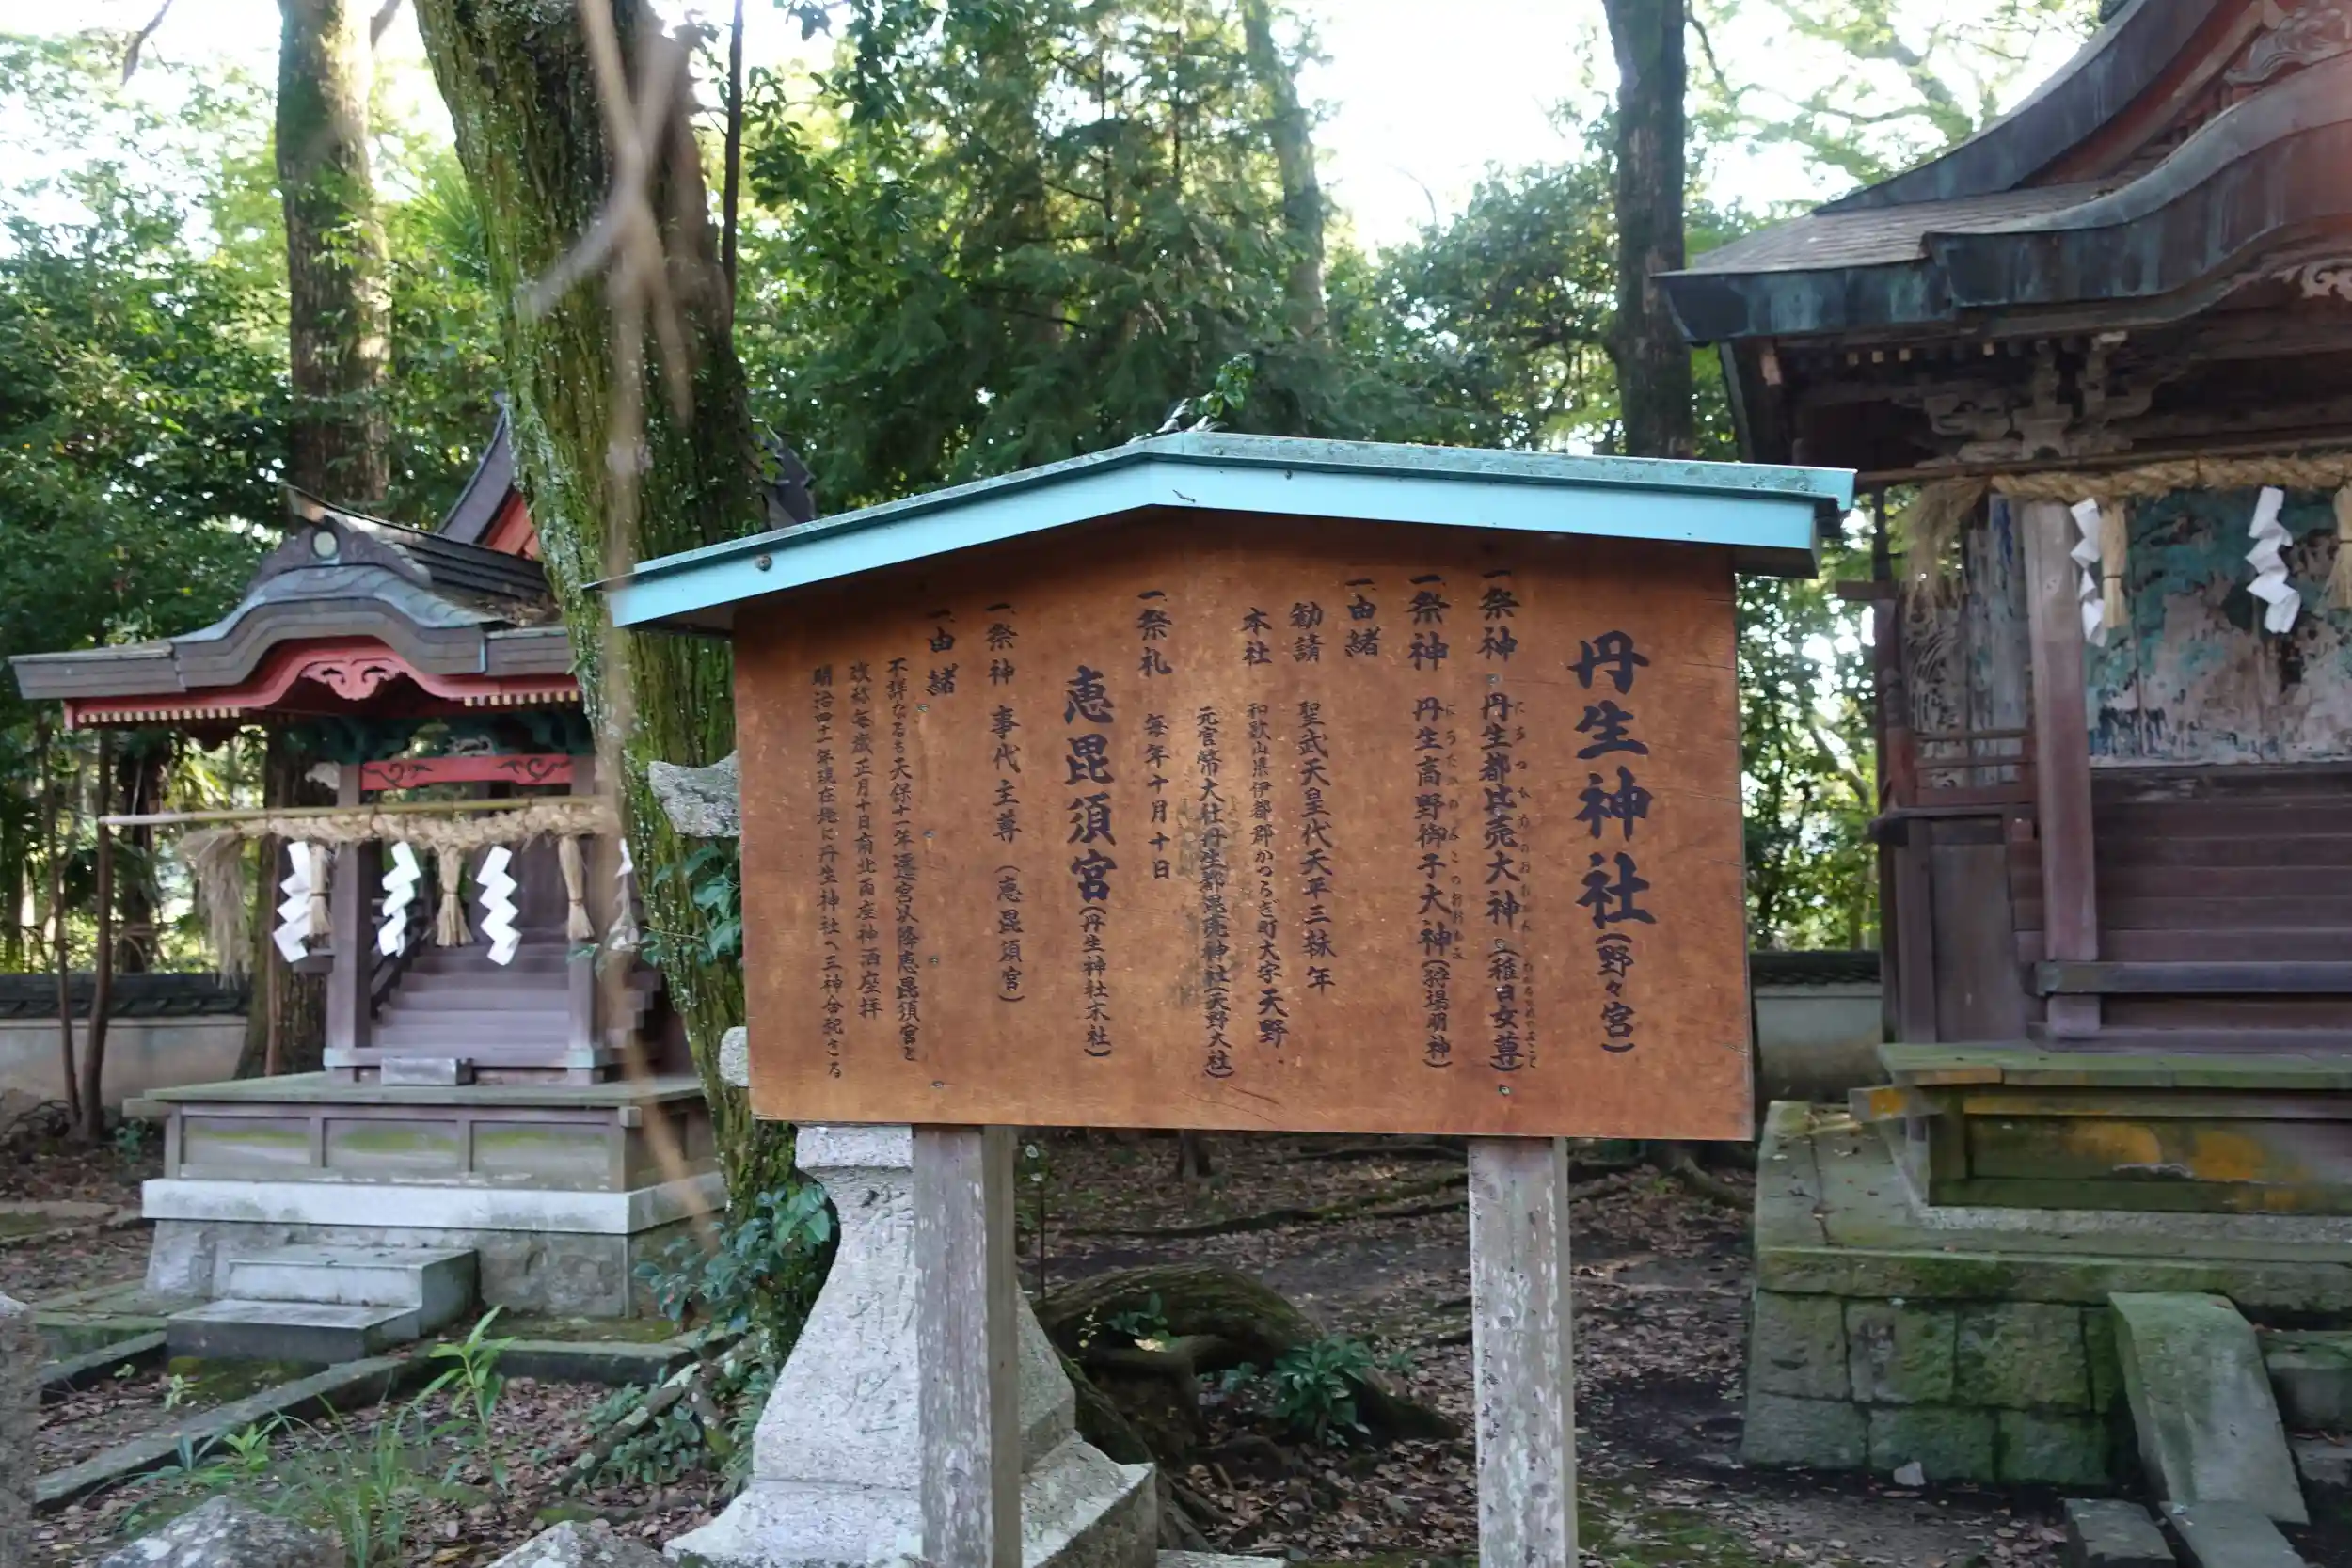 丹生神社(野々宮)
一、祭神 丹生都比売大神(稚日女尊)
一、祭神 丹生高野御子大神(狩場明神)
一、由緒
勧請 聖武天皇代天平三年
本社 和歌山県伊都郡かつらぎ町大字天野
元官幣大社丹生都毘売神社(天野大社)
一、祭礼 毎年十月十日
恵毘須宮(丹生神社末社)
一、祭神 事代主尊(恵毘須宮)
一、由緒
不詳なるも天保十一年遷宮以降恵毘須宮と
改称毎歳正月十日南北両座神酒座拝
明治四十一年現在地に丹生神社へ三神合祀さる